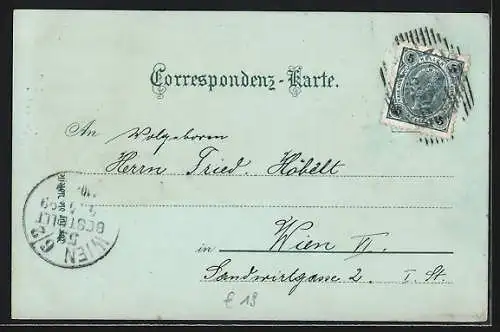 Correspondenz-Karte.
An Wolgeboren
Herrn Fried. Höbelt
in Wien II.
Sandwirtgasse 2. I. St.
WIEN 6/2
BESTELLT
£ 19
5
5